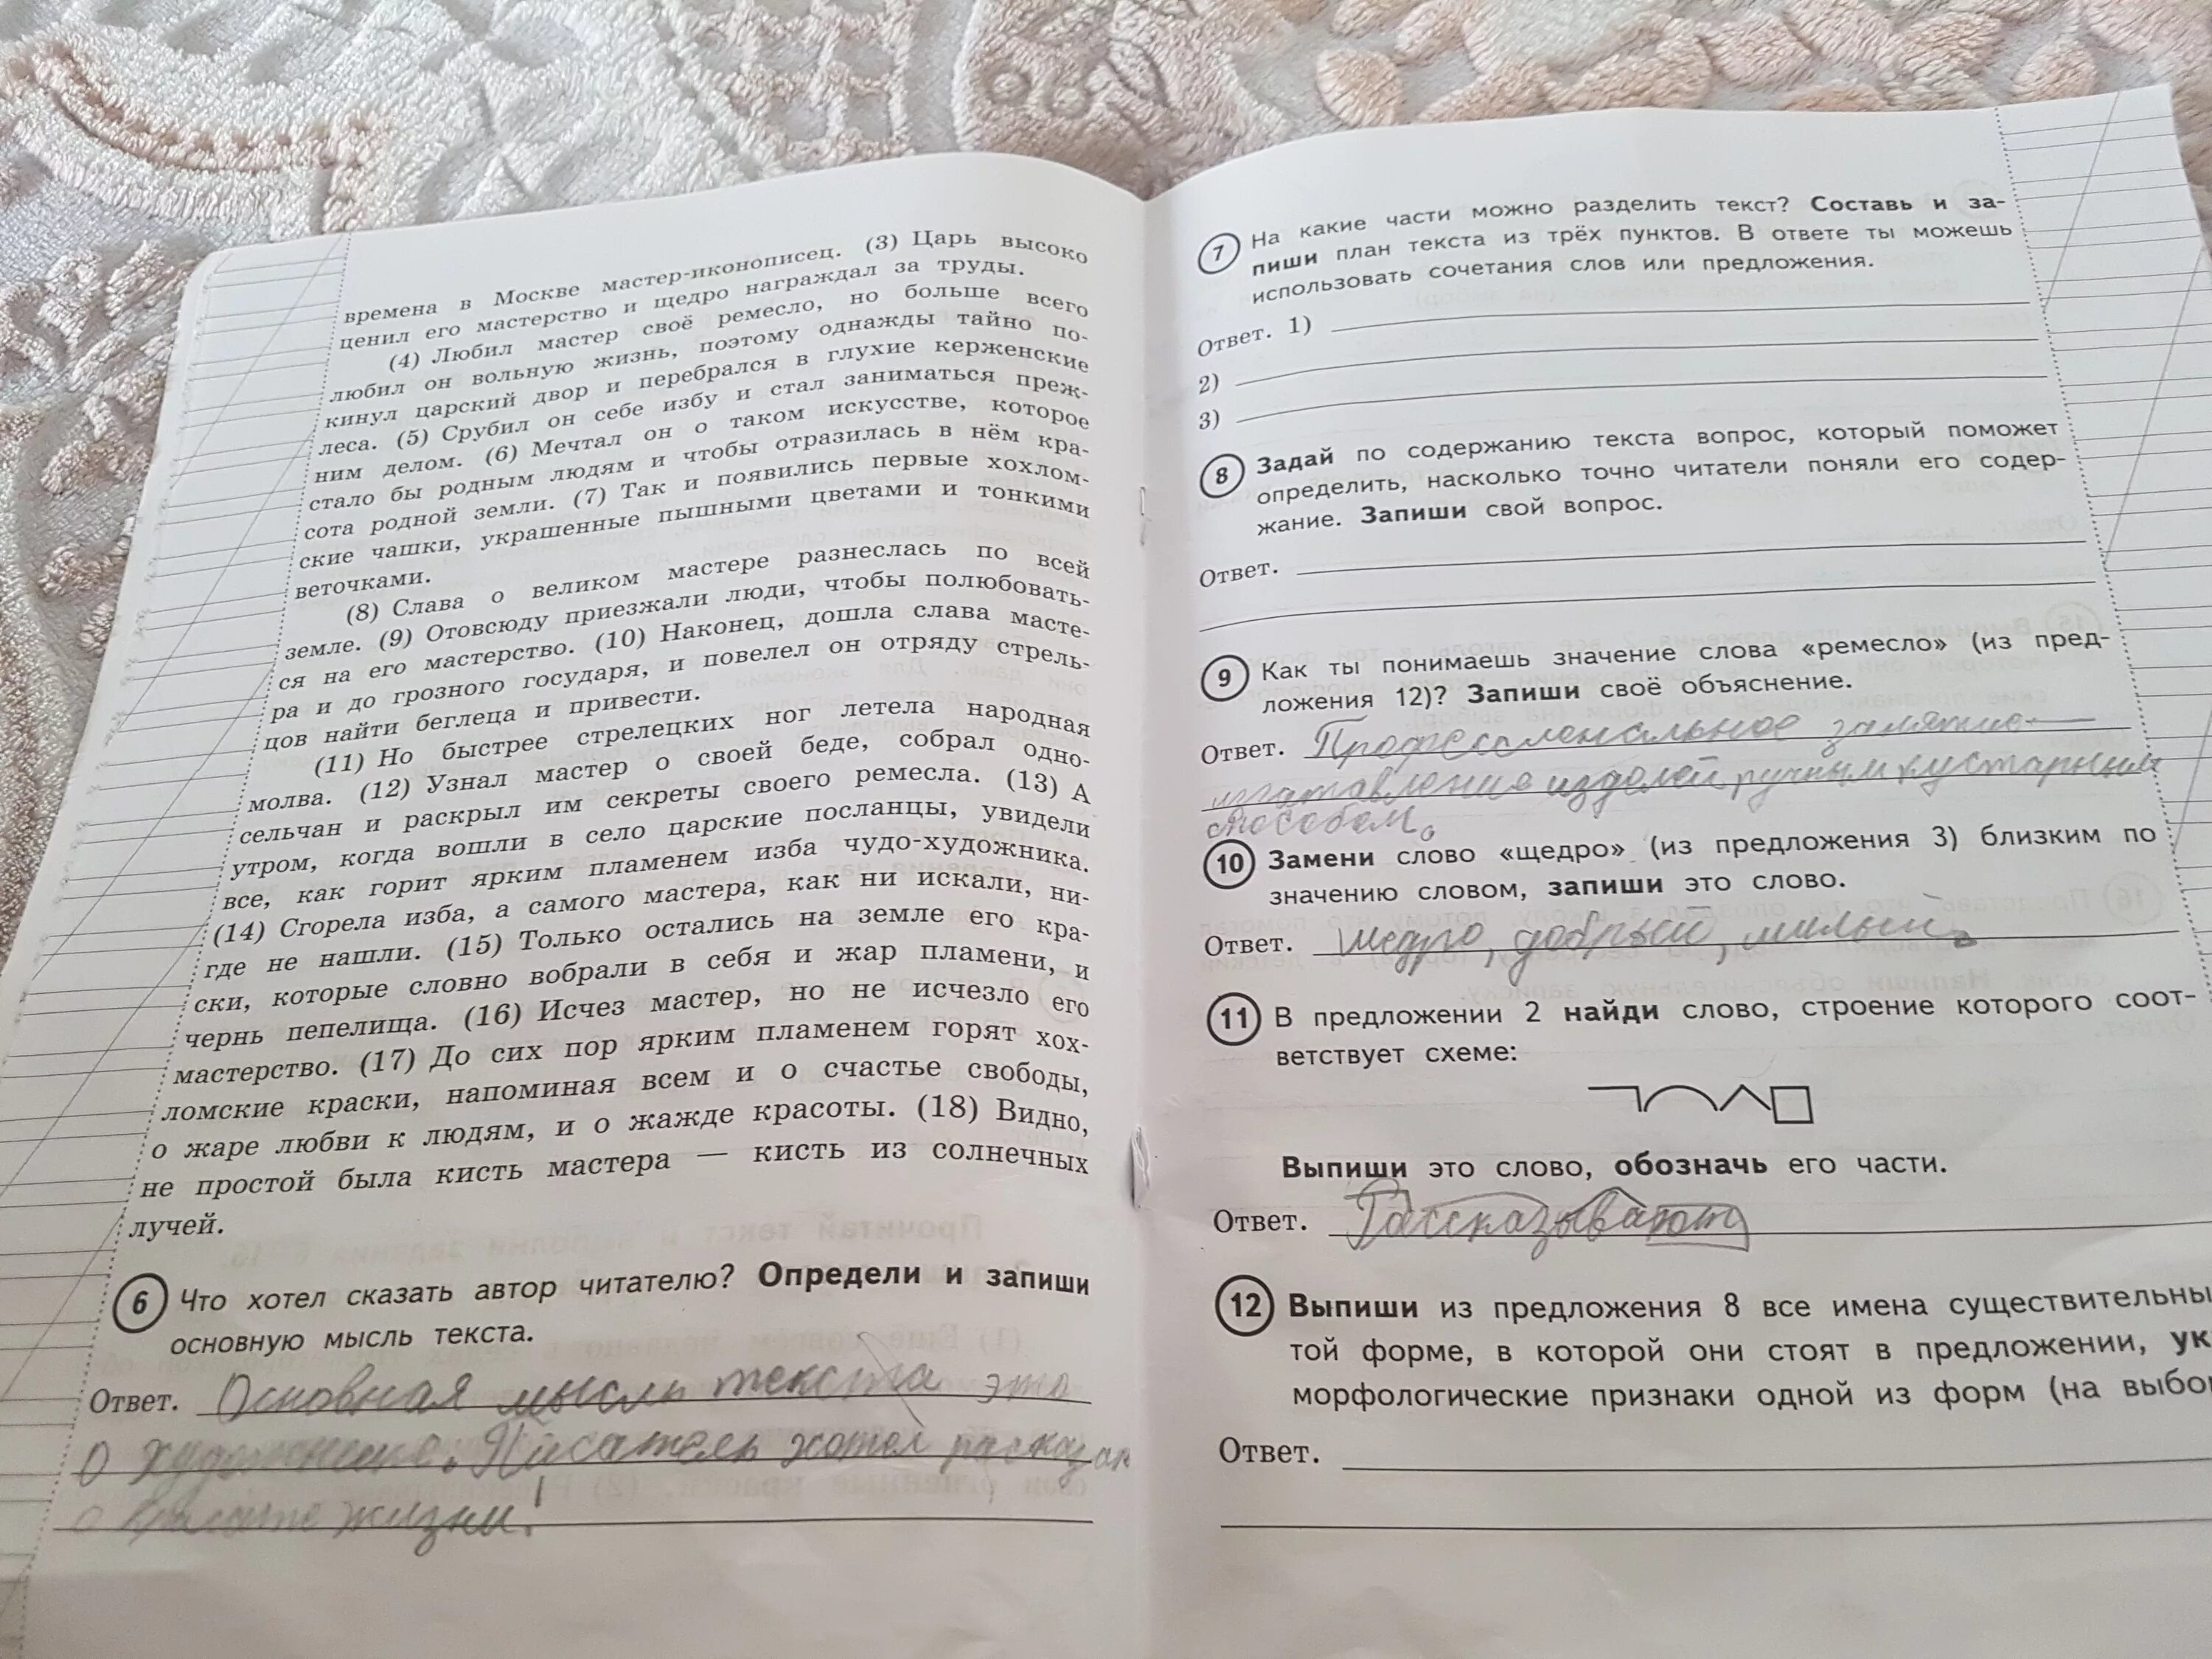 времена в Москве мастер-иконописец. (3) Царь высоко
ценил его мастерство и щедро награждал за труды.
(4) Любил мастер своё ремесло, но больше всего
любил он вольную жизнь, поэтому однажды тайно по-
кинул царский двор и перебрался в глухие керженские
леса. (5) Срубил он себе избу и стал заниматься преж-
ним делом. (6) Мечтал он о таком искусстве, которое
стало бы родным людям и чтобы отразилась в нём кра-
сота родной земли. (7) Так и появились первые хохлом-
ские чашки, украшенные пышными цветами и тонкими
веточками.
(8) Слава о великом мастере разнеслась по всей
земле. (9) Отовсюду приезжали люди, чтобы полюбовать-
ся на его мастерство. (10) Наконец, дошла слава масте-
ра и до грозного государя, и повелел он отряду стрель-
цов найти беглеца и привести.
(11) Но быстрее стрелецких ног летела народная
молва. (12) Узнал мастер о своей беде, собрал одно-
сельчан и раскрыл им секреты своего ремесла. (13) А
утром, когда вошли в село царские посланцы, увидели
все, как горит ярким пламенем изба чудо-художника.
(14) Сгорела изба, а самого мастера, как ни искали, ни-
где не нашли. (15) Только остались на земле его кра-
ски, которые словно вобрали в себя и жар пламени, и
чернь пепелища. (16) Исчез мастер, но не исчезло его
мастерство. (17) До сих пор ярким пламенем горят хох-
ломские краски, напоминая всем и о счастье свободы,
о жаре любви к людям, и о жажде красоты. (18) Видно,
не простой была кисть мастера — кисть из солнечных
лучей.
6 Что хотел сказать автор читателю? Определи и запиши
основную мысль текста.
Ответ. Основная мысль текста это
о художнике. Писатель хотел
о красоте жизни!
7 На какие части можно разделить текст? Составь и за-
пиши план текста из трёх пунктов. В ответе ты можешь
использовать сочетания слов или предложения.
Ответ. 1)
2)
3)
8 Задай по содержанию текста вопрос, который поможет
определить, насколько точно читатели поняли его содер-
жание. Запиши свой вопрос.
Ответ.
9 Как ты понимаешь значение слова «ремесло» (из пред-
ложения 12)? Запиши своё объяснение.
Ответ. Профессиональное занятие—
изделей, ручным кустарным
способом.
10 Замени слово «щедро» (из предложения 3) близким по
значению словом, запиши это слово.
Ответ. Щедро, добрый, милый.
11 В предложении 2 найди слово, строение которого соот-
ветствует схеме:
Выпиши это слово, обозначь его части.
Ответ. Рассказывают
12 Выпиши из предложения 8 все имена существительны
той форме, в которой они стоят в предложении, ук
морфологические признаки одной из форм (на выбо
Ответ.